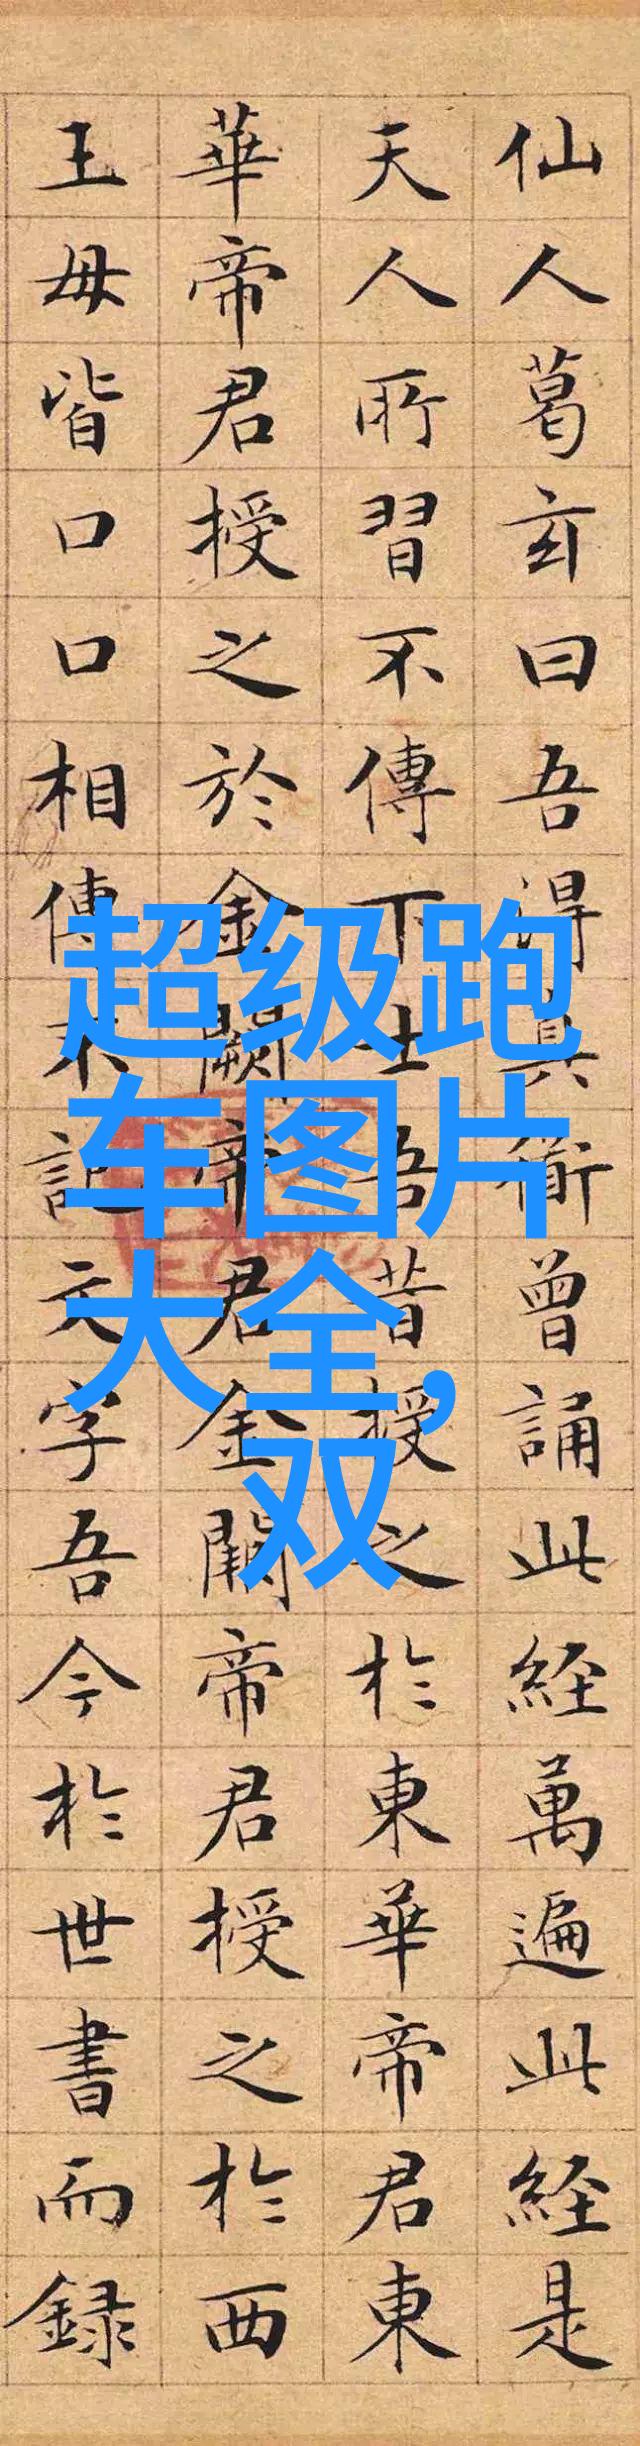 仙人葛玄曰吾得真衜曾誦此経萬遍此経是
天人所習不傳下士吾昔授之於東華帝君東
華帝君授之於金闕帝君金闕帝君授之於西
王母皆口口相傳不記文字吾今於世書而録
超级跑
车图片
大全,
双